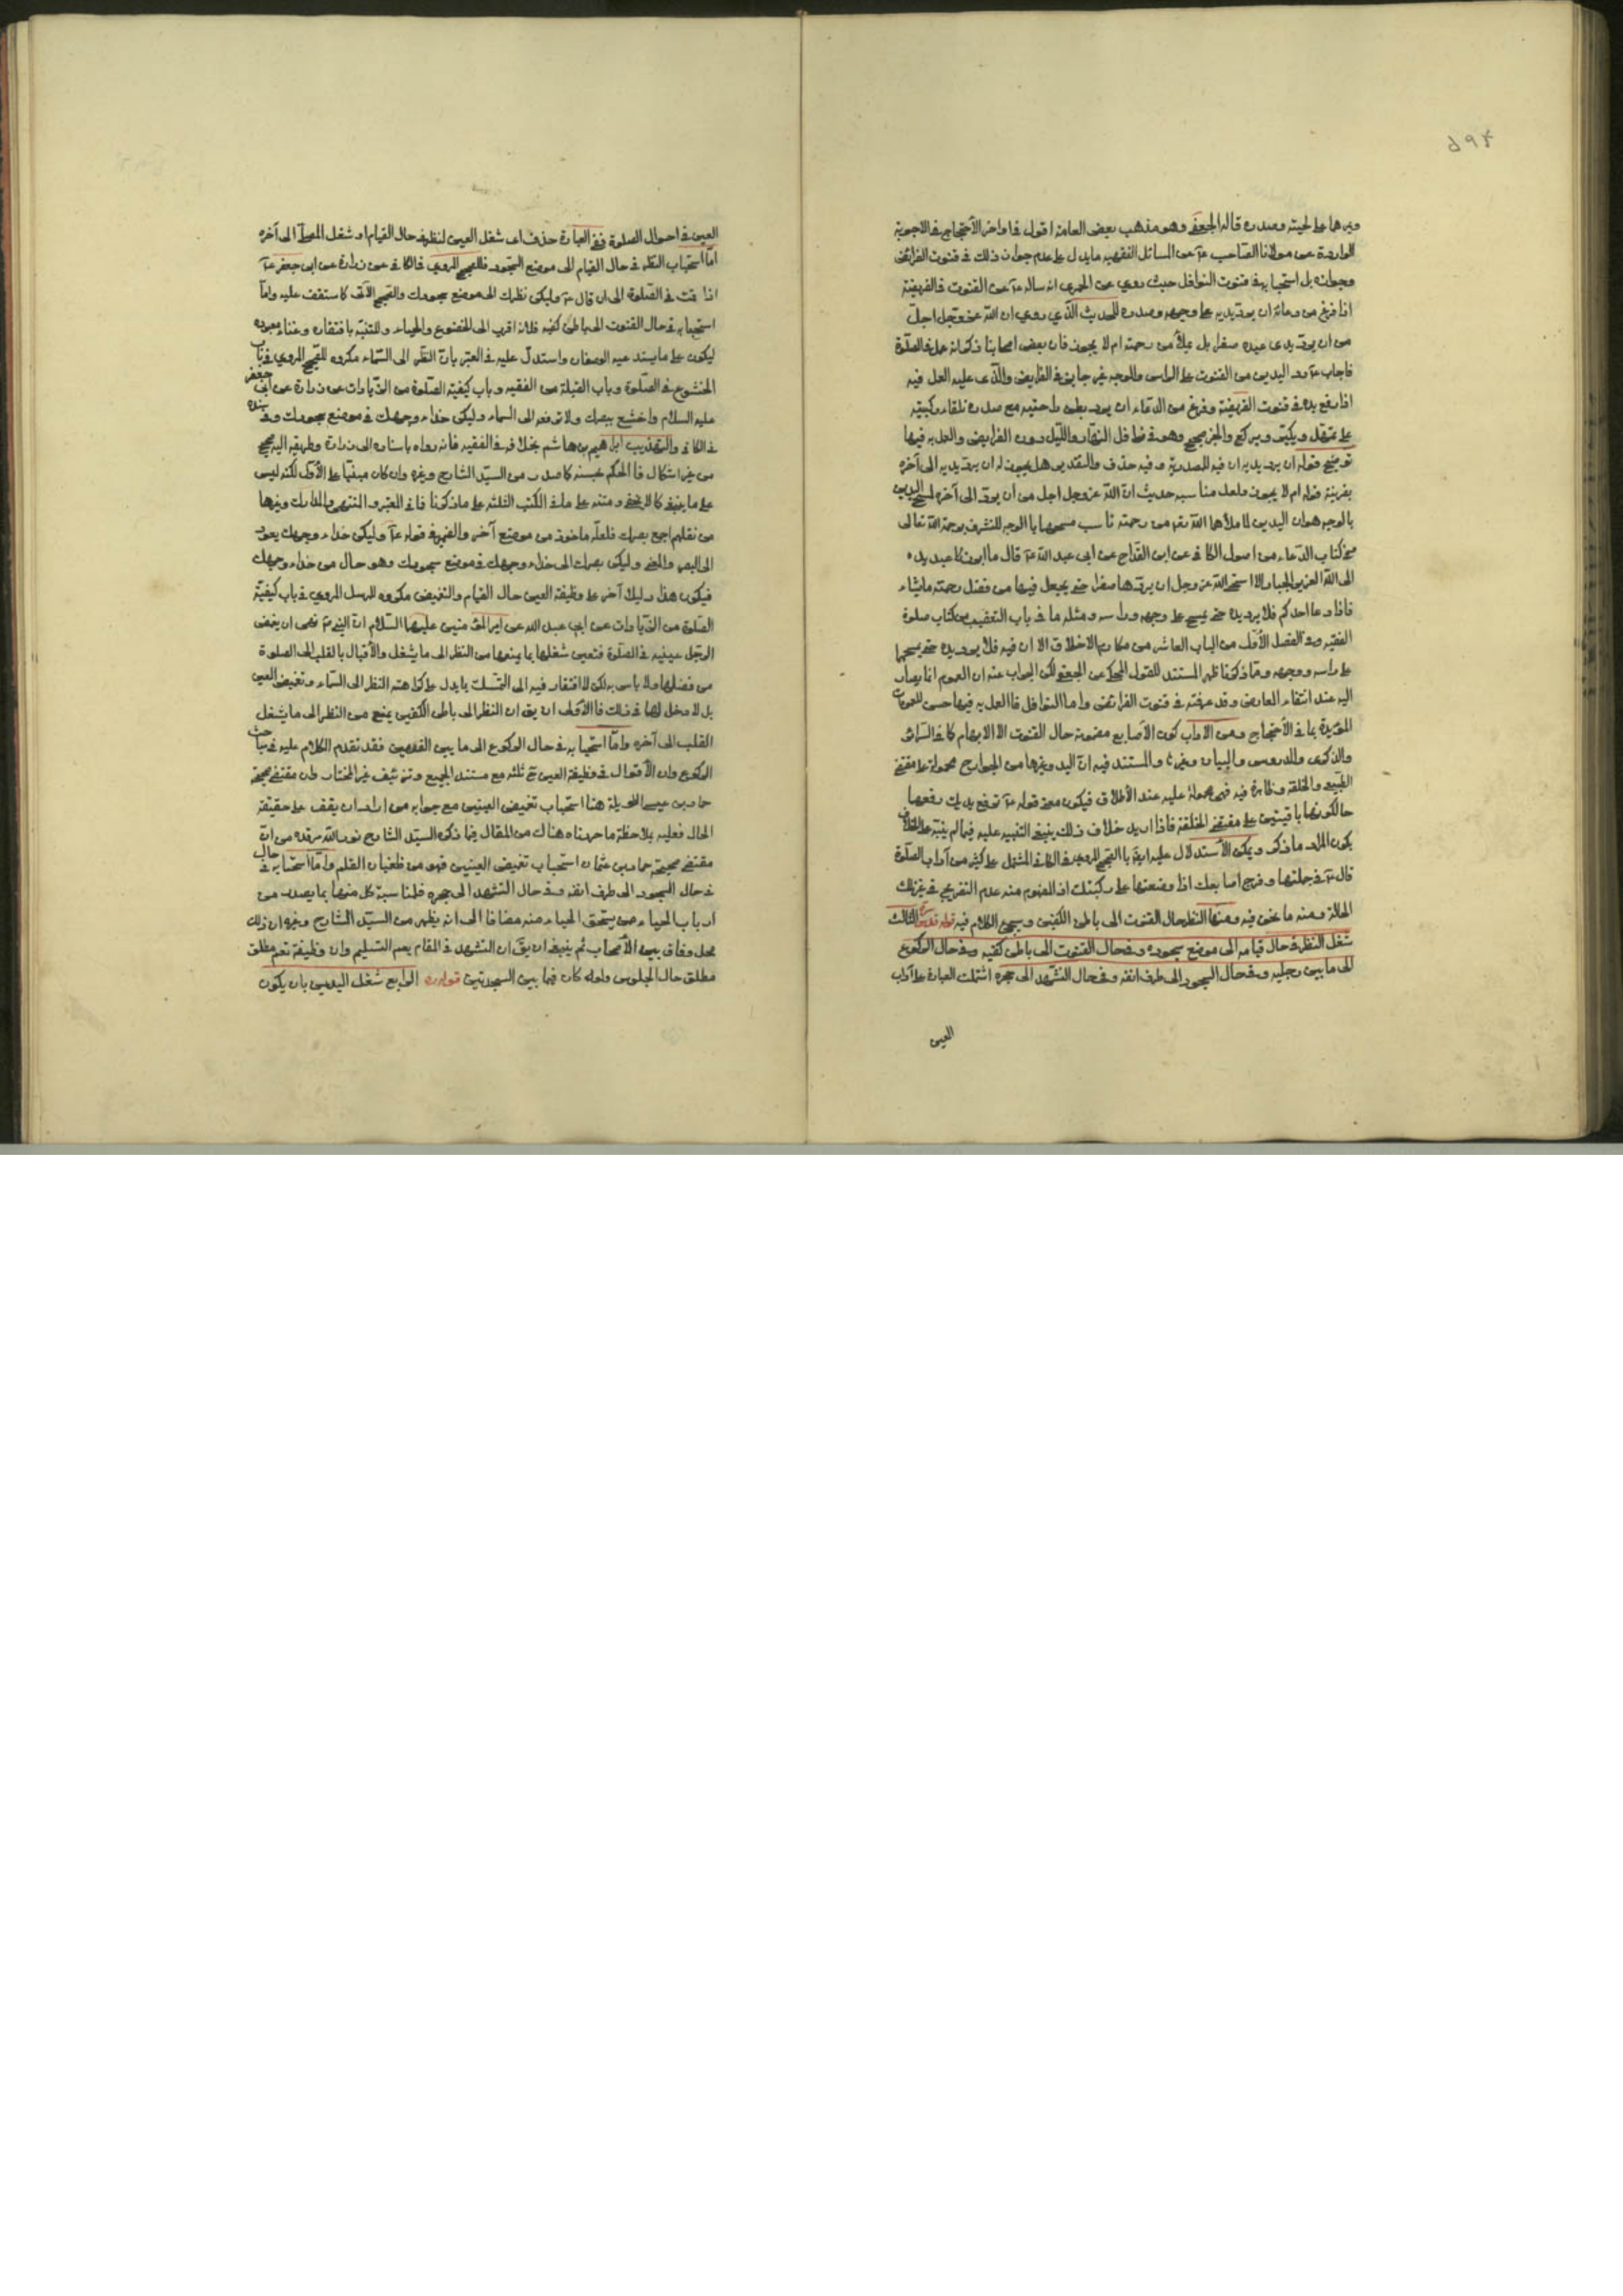 ٥٩٤
ويمرها على لحيته وصدره قاله الجعفي وهو مذهب بعض العامة اقول في اواخر الاحتجاج في الاجوبة
الواردة عن مولانا الصاحب عـ عن المسائل الفقهيه مايدل على عدم جواز ذلك في قنوت الفرائض
وجوازه بل استحبابه في قنوت النوافل حيث روي عن الحميري انه ساله عـ عن القنوت في الفريضة
اذا فرغ من دعائه ان يرد يديه على وجهه وصدره للحديث الذي روي ان الله عز وجل اجل
من ان يرد يدي عبده صفرا بل يملأ من رحمته ام لا يجوز فان بعض اصحابنا ذكر انه عمل في الصلوة
فاجاب عـ رد اليدين من القنوت على الراس والوجه غير جايز في الفرايض والذي عليه العمل فيه
اذا رفع يده في قنوت الفريضة وفرغ من الدعاء ان يرد بطن راحتيه مع صدره تلقاء ركبتيه
على تمهل ويكبر ويركع والخبر صحيح وهو في نوافل النهار والليل دون الفرايض والعمل به فيها
توضيح قوله ان يرد يديه ان فيه المصدرية وفيه حذف والتقدير هل يجوز له ان يرد يديه الى آخره
بقرينة قوله ام لا يجوز ولعل مناسبه حديث ان الله عز وجل اجل من ان يرد الى آخره لمسح اليدين
بالوجه هو ان اليدين لما ملأها الله من رحمته ناسب مسحهما بالوجه للتشرف برحمة الله تعالى
في كتاب الدعاء من اصول الكافي عن ابن القداح عن ابي عبد الله عـ قال ما ابرز عبد يده
الى الله العزيز الجبار الا استحى الله عز وجل ان يردها صفرا حتى يجعل فيها من فضل رحمته مايشاء
فاذا دعا احدكم فلا يرد يده حتى يمسح على وجهه وراسه ومثله ما في باب التعقيب من كتاب صلوة
الفقيه وفي الفصل الأول من الباب العاشر من مكارم الاخلاق الا ان فيه فلا يرد يده حتى يمسح بها
على راسه ووجهه ومما ذكرنا ظهر المستند للقول المحكي عن الجعفي لكن الجواب عنه ان العموم انما يصار
اليه عند انتفاء المعارض وقد عرفته في قنوت الفرائض واما النوافل فالعمل به فيها حسن للعمومات
المؤيدة بما في الاحتجاج ومن الاداب كون الأصابع مضمومة حال القنوت الا الابهام كما في السرائر
والذكرى والدروس والبيان وغيرها والمستند فيه ان اليد وغيرها من الجوارح محمولة على مقتضى
الطبع والخلقة وظاهرة فيه فهي محمولة عليه عند الأطلاق فيكون معنى قوله عـ ترفع يديك رفعهما
حالكونهما باقيتين على مقتضى الخلقة فاذا اريد خلاف ذلك ينبغي التنبيه عليه فيما لم ينبه على الخلاف
يكون المراد ما ذكر ويمكن الأستدلال عليه ايضا بالصحيح المروي في الكافي المشتمل على كثير من آداب الصلوة
قال عـ في جملتها وفرج اصابعك اذا وضعتها على ركبتيك اذ المفهوم منه عدم التفريج في غير تلك
الحالة ومنه ما نحن فيه ومنها النظر حال القنوت الى باطن الكفين وسيجئ الكلام فيه قوله الثالث
شغل النظر في حال قيامه الى موضع سجوده وفي حال القنوت الى باطن كفيه وفي حال الركوع
الى ما بين رجليه وفي حال السجود الى طرف انفه وفي حال التشهد الى حجره اشتملت العبارة على آداب
العين
العين في احوال الصلوة ففي العبارة حذف اي شغل العين لنظر في حال القيام او شغل المصلي الى آخره
اما استحباب النظر في حال القيام الى موضع السجود فللصحيح المروي في الكافي عن زرارة عن ابي جعفر عـ
اذا قمت في الصلوة الى ان قال عـ وليكن نظرك الى موضع سجودك والصحيح الآتي كما ستقف عليه واما
استحبابه في حال القنوت الى باطن كفيه فلانه اقرب الى الخضوع والحياء وللتنبه بافتقاره وغناء معبوده
ليكون على ما يستدعيه الوصفان واستدل عليه في المعتبر بان النظر الى السماء مكروه للصحيح المروي في باب
الخشوع في الصلوة وباب القبلة من الفقيه وباب كيفية الصلوة من الزيادات عن زرارة عن ابي جعفر
عليه السلام واخشع ببصرك ولا ترفعه الى السماء وليكن حذاء وجهك في موضع سجودك وفي سنده
في الكافي والتهذيب ابراهيم بن هاشم بخلافه في الفقيه فانه رواه باسناده الى زرارة وطريقه اليه صحيح
من غير اشكال فالحكم بحسنه كما صدر من السيد الشارح وغيره وان كان مبنيا على الأول لكنه ليس
على ما ينبغي كما لا يخفى ومتنه على ما في الكتب الثلثة على ما ذكرنا فما في المعتبر والمنتهى والمدارك وغيرها
من نقلهم اجمع بصرك فلعله ماخوذ من موضع آخر والضمير في قوله عـ وليكن حذاء وجهك يعود
الى البصر والمعنى وليكن بصرك الى حذاء وجهك في موضع سجودك وهو حال من حذاء وجهك
فيكون هذا دليلا آخر على وظيفة العين حال القيام والتغميض مكروه للمرسل المروي في باب كيفية
الصلوة من الزيادات عن ابي عبد الله عن امير المؤمنين عليهما السلام ان النبي نهى ان يغمض
الرجل عينيه في الصلوة فتعين شغلها بما يمنعها من النظر الى ما يشغل والأقبال بالقلب الى الصلوة
من فضلها ولا باس به لكن لا افتقار فيه الى التمسك بما يدل على كراهته النظر الى السماء وتغميض العين
بل لا دخل لهما في ذلك فالأولى ان يق ان النظر الى باطن الكفين يمنع من النظر الى ما يشغل
القلب الى آخره واما استحبابه في حال الركوع الى ما بين القدمين فقد تقدم الكلام عليه في مباحث
الركوع وان الأقوال في وظيفة العين ح ثلثة مع مستند الجميع وتزئيف غير المختار وان مقتضى صحيحة
حماد بن عيسى الطويلة هنا استحباب تغميض العينين مع جوابه من اراد ان يقف على حقيقة
الحال فعليه بملاحظة ما حررناه هناك من المقال فما ذكره السيد الشارح نور الله مرقده من ان
مقتضى صحيحة حماد بن عثمان استحباب تغميض العينين فهو من طغيان القلم واما استحبابه في حال
في حال السجود الى طرف انفه وفي حال التشهد الى حجره فلمناسبة كل منهما بما يصدر من
ارباب الحياء من يستحق الحياء منه مضافا الى انه يظهر من السيد الشارح وغيره ان ذلك
محل وفاق بين الأصحاب ثم ينبغي ان يق ان التشهد في المقام يعم التسليم وان وظيفته تعم مطلق
مطلق حال الجلوس ولو كان فيما بين السجدتين قوله ره الرابع شغل اليدين بان يكون